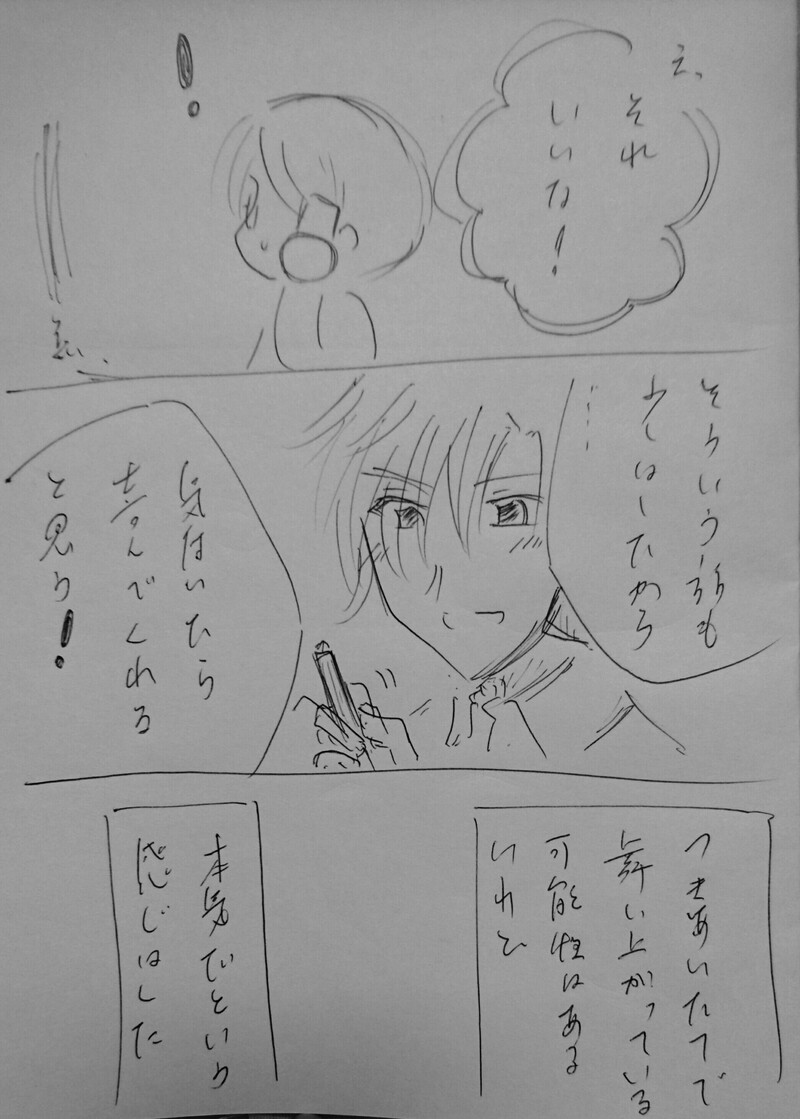 え、
それ
いいな!
!
そういう話も
少しはしたから
……
気はいたら
喜んでくれる
と思う!
つきあいたてで
舞い上がっている
可能性はある
けれど
本気だという
感じはした